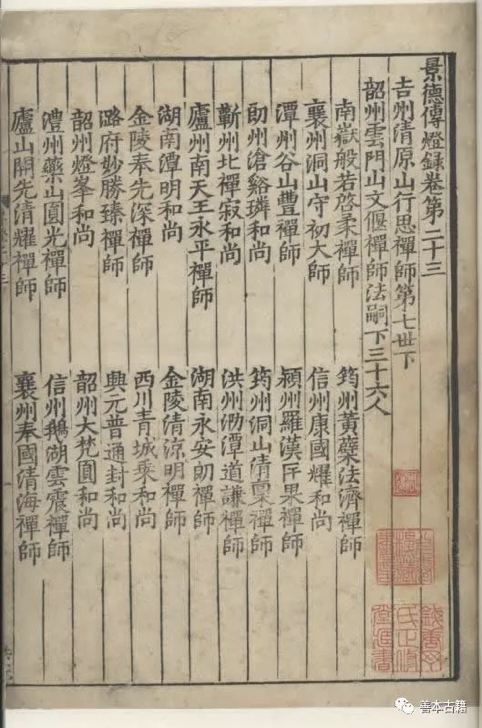 景德傳燈錄卷第二十三
吉州清原山行思禪師第七世下
韶州雲門山文偃禪師法嗣下三十六人
南嶽般若啓柔禪師 筠州黃蘗法濟禪師
襄州洞山守初大師 信州康國耀和尚
潭州谷山豐禪師 潁州羅漢匡果禪師
朗州滄谿璘和尚 筠州洞山清稟禪師
蘄州北禪寂和尚 洪州泐潭道謙禪師
廬州南天王永平禪師 湖南永安朗禪師
湖南潭明和尚 金陵清涼明禪師
金陵奉先深禪師 西川青城乘和尚
潞府妙勝臻禪師 興元普通封和尚
韶州燈峯和尚 韶州大梵圓和尚
澧州藥山圓光禪師 信州鵝湖雲震禪師
廬山開先清耀禪師 襄州奉國清海禪師
錢唐丁
氏正修
堂藏書
善本古籍